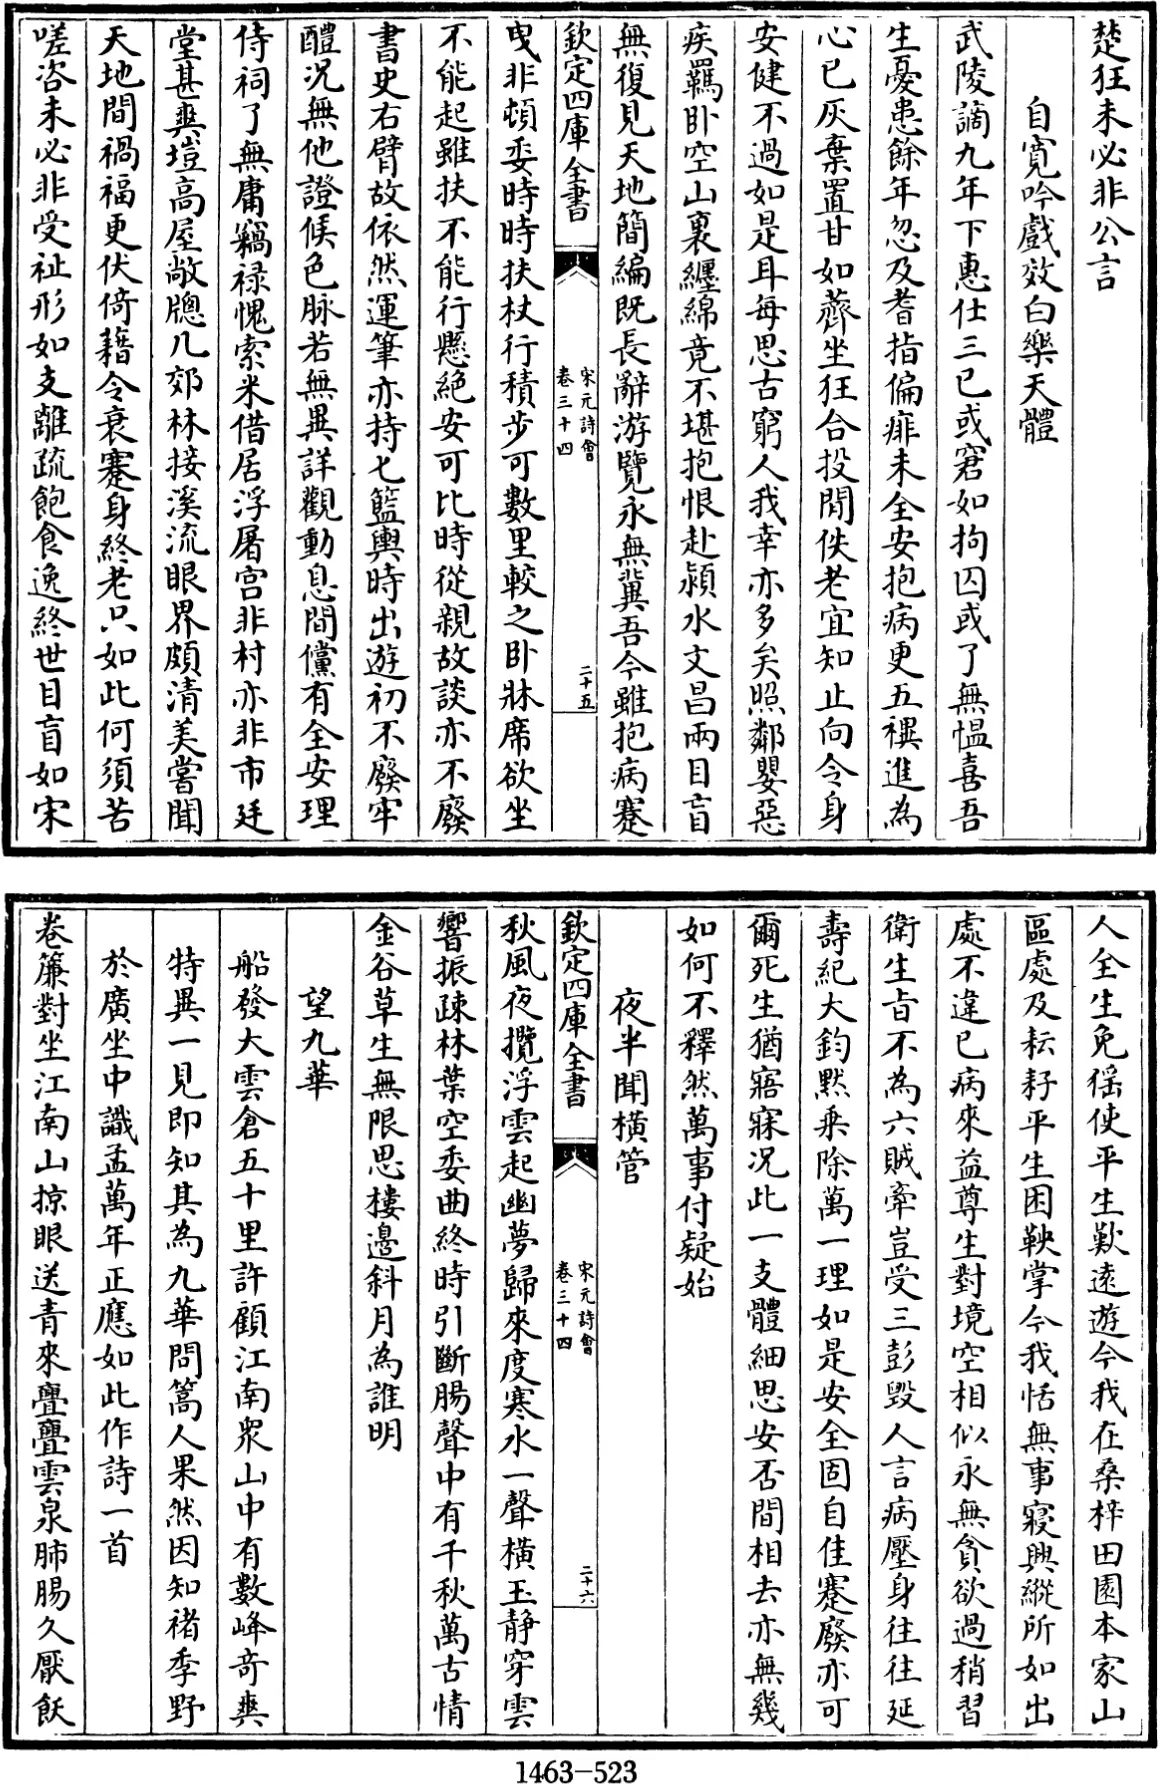 楚狂未必非公言
自寛吟戲效白樂天體
武陵謫九年下惠仕三已或窘如拘囚或了無愠喜吾
生憂患餘年忽及耆指偏痱未全安抱病更五禩進為
心已灰棄置甘如薺坐狂合投閒佚老宜知止向令身
安健不過如是耳每思古窮人我幸亦多矣照鄰嬰惡
疾羈卧空山裏纏綿竟不堪抱恨赴潁水文昌兩目盲
無復見天地簡編既長辭游覽永無冀吾今雖抱病蹇
欽定四庫全書
宋元詩會
卷三十四
二十五
曵非頓委時時扶杖行積步可數里較之卧牀席欲坐
不能起雖扶不能行懸絶安可比時從親故談亦不廢
書史右臂故依然運筆亦持匕籃輿時出遊初不廢牢
醴况無他證候色脉若無異詳觀動息間儻有全安理
侍祠了無庸竊禄愧索米借居浮屠宫非村亦非市廷
堂甚爽塏高屋敞牕几郊林接溪流眼界頗清美嘗聞
天地間禍福更伏倚藉令衰蹇身終老只如此何須苦
嗟咨未必非受祉形如支離疏飽食逸終世目盲如宋
人全生免徭使平生歎遠遊今我在桑梓田園本家山
區處及耘耔平生困鞅掌今我恬無事寢興縱所如出
處不違已病來益尊生對境空相似永無貪欲過稍習
衛生旨不為六賊牽豈受三彭毁人言病壓身往往延
壽紀大鈞黙乗除萬一理如是安全固自佳蹇廢亦可
爾死生猶寤寐况此一支體細思安否間相去亦無幾
如何不釋然萬事付疑始
夜半聞橫管
欽定四庫全書
宋元詩會
卷三十四
二十六
秋風夜攪浮雲起幽夢歸來度寒水一聲橫玉静穿雲
響振疎林葉空委曲終時引斷腸聲中有千秋萬古情
金谷草生無限思樓邉斜月為誰明
望九華
船發大雲倉五十里許顧江南衆山中有數峰奇爽
特異一見即知其為九華問篙人果然因知褚季野
於廣坐中識孟萬年正應如此作詩一首
卷簾對坐江南山掠眼送青來亹亹雲泉肺腸久厭飫
1463-523